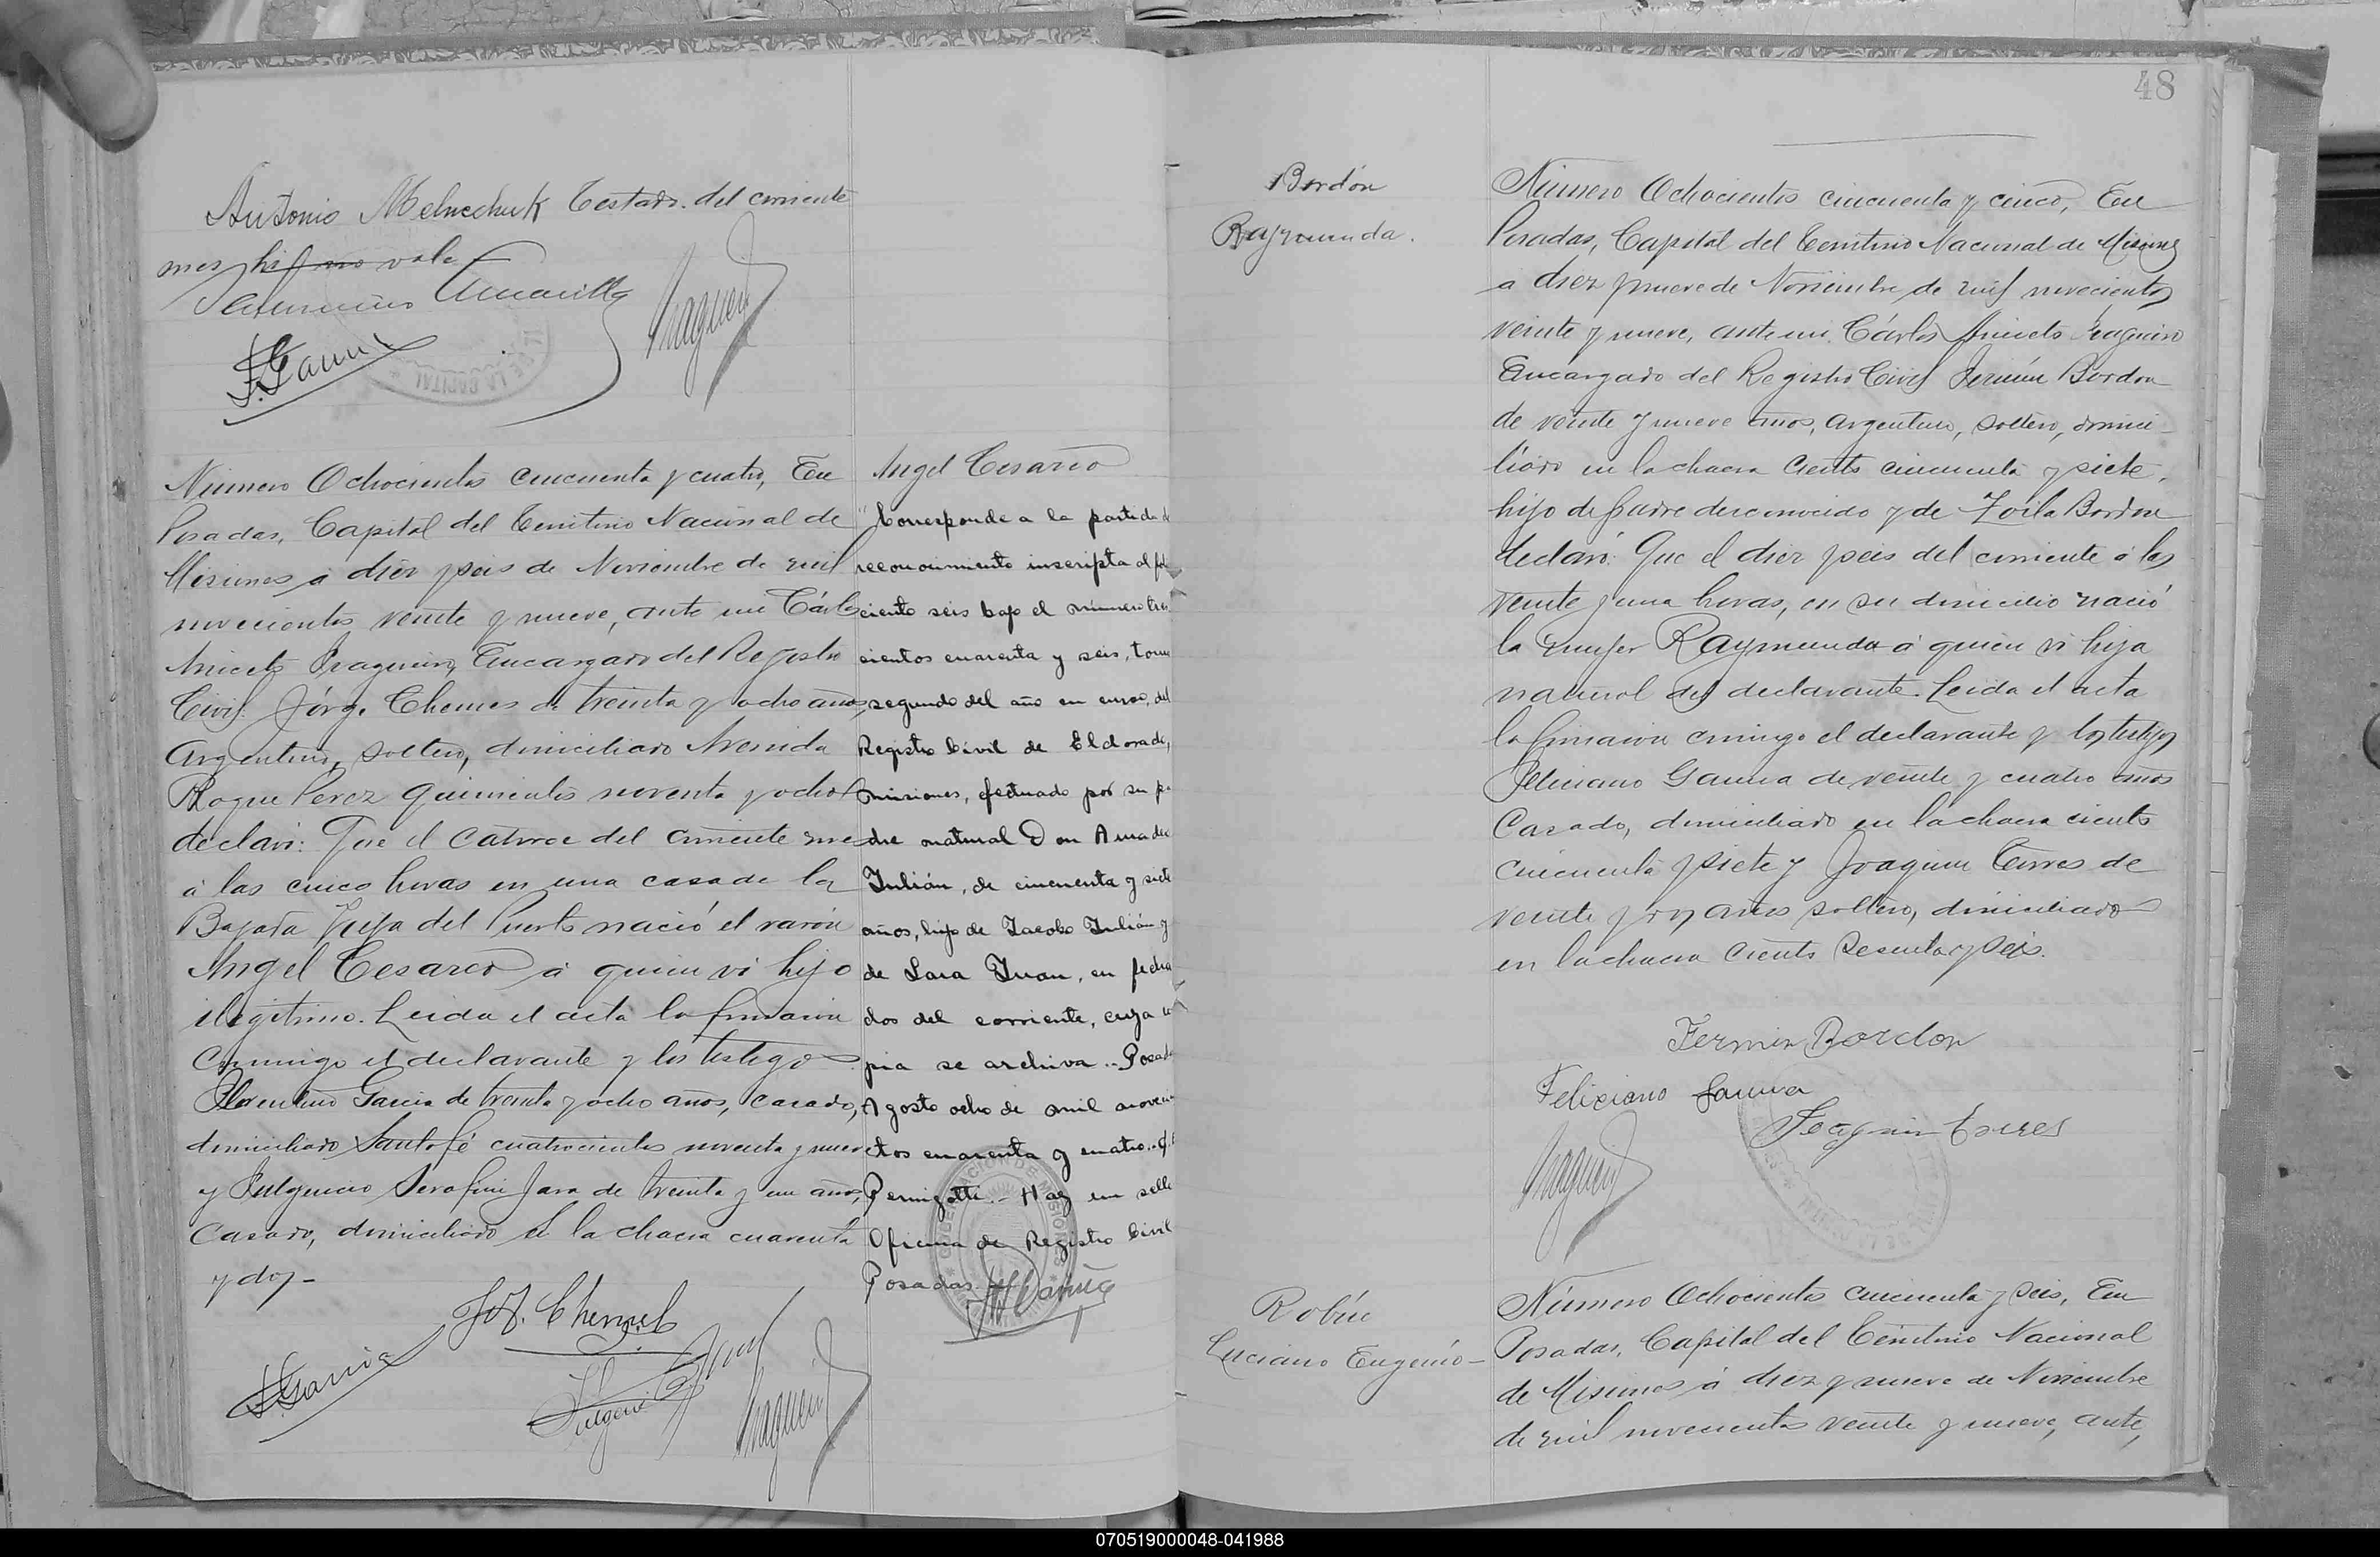 Antonio Melnechuk Testado. del corriente
mes, hijo no vale
Saturnino Amarilla
F. Garcia
Número Ochocientos cincuenta y cuatro, En
Posadas, Capital del Territorio Nacional de
Misiones á diez y seis de Noviembre de mil
novecientos veinte y nueve, ante mi Cárlos
Aniceto Iraguirre, Encargado del Registro
Civil. Jórge Chemes de treinta y ocho años,
Argentino, soltero, domiciliado Avenida
Roque Perez quinientos noventa y ocho
declaró: Que el catorce del corriente mes
á las cinco horas en una casa de la
Bajada Vieja del Puerto nació el varón
Angel Cesareo á quien vi hijo
ilegitimo. Leida el acta la firmaron
conmigo el declarante y los testigos
Florentino Garcia de treinta y ocho años, casado,
domiciliado Santa Fé cuatrocientos noventa y nueve
y Fulgencio Serafin Jara de treinta y un años,
casado, domiciliado en la chacra cuarenta
y dos -
F. Garcia
Angel Cesareo
"Corresponde a la partida d
reconocimiento inscripta al fol
ciento seis bajo el número tres
cientos cuarenta y seis, tomo
segundo del año en curso, del
Registro Civil de Eldorado,
Misiones, efectuado por su pa
dre natural Don Amadeo
Julián, de cincuenta y siete
años, hijo de Jacobo Julián y
de Sara Juan, en fecha
dos del corriente, cuya co
pia se archiva.- Posadas
Agosto ocho de mil novecien
tos cuarenta y cuatro.-
Pernigotti.- Hay un sello
Oficina de Registro Civil
Posadas.
48
Bordón
Raymunda.
Número Ochocientos cincuenta y cinco, En
Posadas, Capital del Territorio Nacional de Misiones
a diez y nueve de Noviembre de mil novecientos
veinte y nueve, ante mi Cárlos Aniceto Iraguirre
Encargado del Registro Civil Fermín Bordon
de veinte y nueve años, argentino, soltero, domici-
liado en la chacra ciento cincuenta y siete,
hijo de padre desconocido y de Zoila Bordon
declaró: Que el diez y seis del corriente á las
veinte y una horas, en su domicilio nació
la mujer Raymunda á quien vi hija
natural del declarante. Leida el acta
la firmaron conmigo el declarante y los testigos
Feliciano Gauna de veinte y cuatro años
casado, domiciliado en la chacra ciento
cincuenta y siete y Joaquin Torres de
veinte y dos años soltero, domiciliado
en la chacra ciento sesenta y seis.
Fermin Bordon
Feliciano Gauna
Joaquin Torres
Robín
Luciano Eugenio -
Número Ochocientos cincuenta y seis, En
Posadas, Capital del Territorio Nacional
de Misiones á diez y nueve de Noviembre
de mil novecientos veinte y nueve, ante,
070519000048-041988